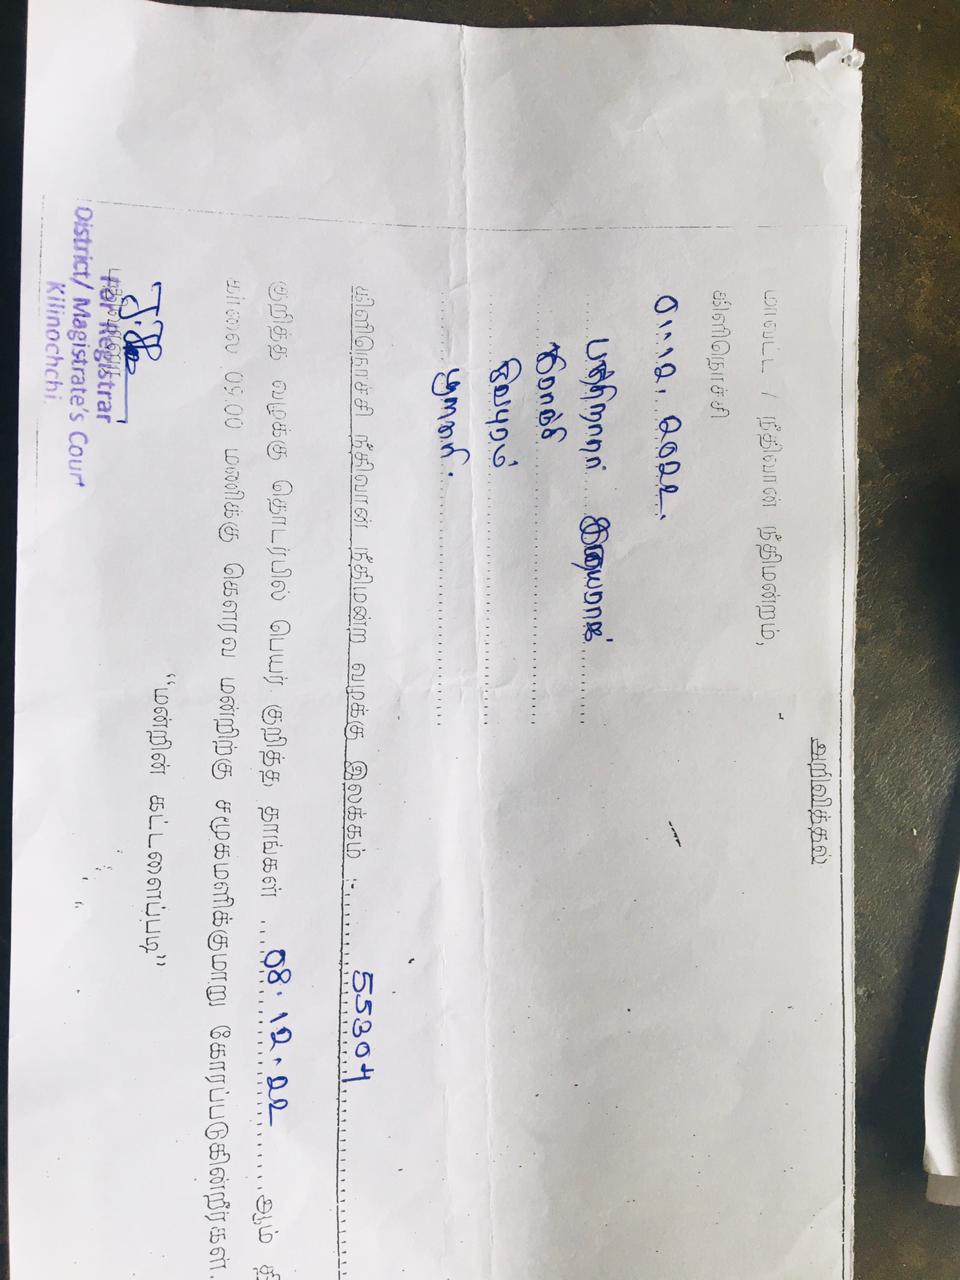 அறிவித்தல்
மாவட்ட / நீதிவான் நீதிமன்றம்,
கிளிநொச்சி
01.12.2022.
இதயராஜ்
பூநகரி.
கிளிநொச்சி நீதிவான் நீதிமன்ற வழக்கு இலக்கம் :- 55304
குறித்த வழக்கு தொடர்பில் பெயர் குறித்த தாங்கள் 08.12.22 ஆம்
காலை 09.00 மணிக்கு கௌரவ மன்றிற்கு சமுகமளிக்குமாறு கோரப்படுகின்றீர்கள்.
“மன்றின் கட்டளைப்படி”
For Registrar
District/ Magistrate's Court
Kilinochchi.